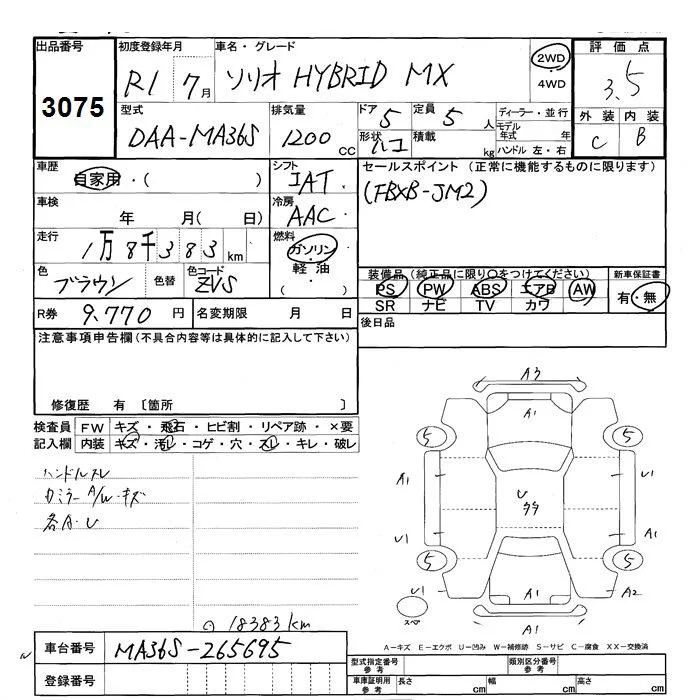 出品番号 初度登録年月 車名・グレード 評価点
3075 R1 7月 ソリオ HYBRID MX 2WD 4WD 3.5
型式 排気量 ドア 5 定員 5人 ディーラー・並行 外装 内装
DAA-MA36S 1200 cc 形状 ハコ 積載 kg モデル年式 年 C B
ハンドル 左・右
車歴 シフト セールスポイント (正常に機能するものに限ります)
自家用・( ) IAT (FBXB-JM2)
車検 冷房
年 月( 日) AAC
走行 燃料
1万8千383 km ガソリン・
軽油
( ・ )
色 色替 色コード 装備品(純正品に限り○をつけてください) 新車保証書
ブラウン ZVS PS PW ABS エアB AW 有・無
SR ナビ TV カワ
R券 9.770 円 名変期限 月 日 後日品
注意事項申告欄(不具合内容等は具体的に記入して下さい)
修復歴 有 〔箇所 〕
検査員 FW キズ・飛石・ヒビ割・リペア跡・×要
記入欄 内装 キズ・汚レ・コゲ・穴・スレ・キレ・破レ
ハンドルスレ
カミラー A/W・キズ
各A・U
A3
A1
5 5
A1 U1
U
タタ
U1 A1
5 5
U1 A1 A2
スペア
A1
18383 km
A-キズ E-エクボ U-凹み W-補修跡 S-サビ C-腐食 XX-交換済
車台番号 MA36S-265695
登録番号
型式指定番号 参考 類別区分番号 参考
車庫証明用 参考 長さ cm 幅 cm 高さ cm